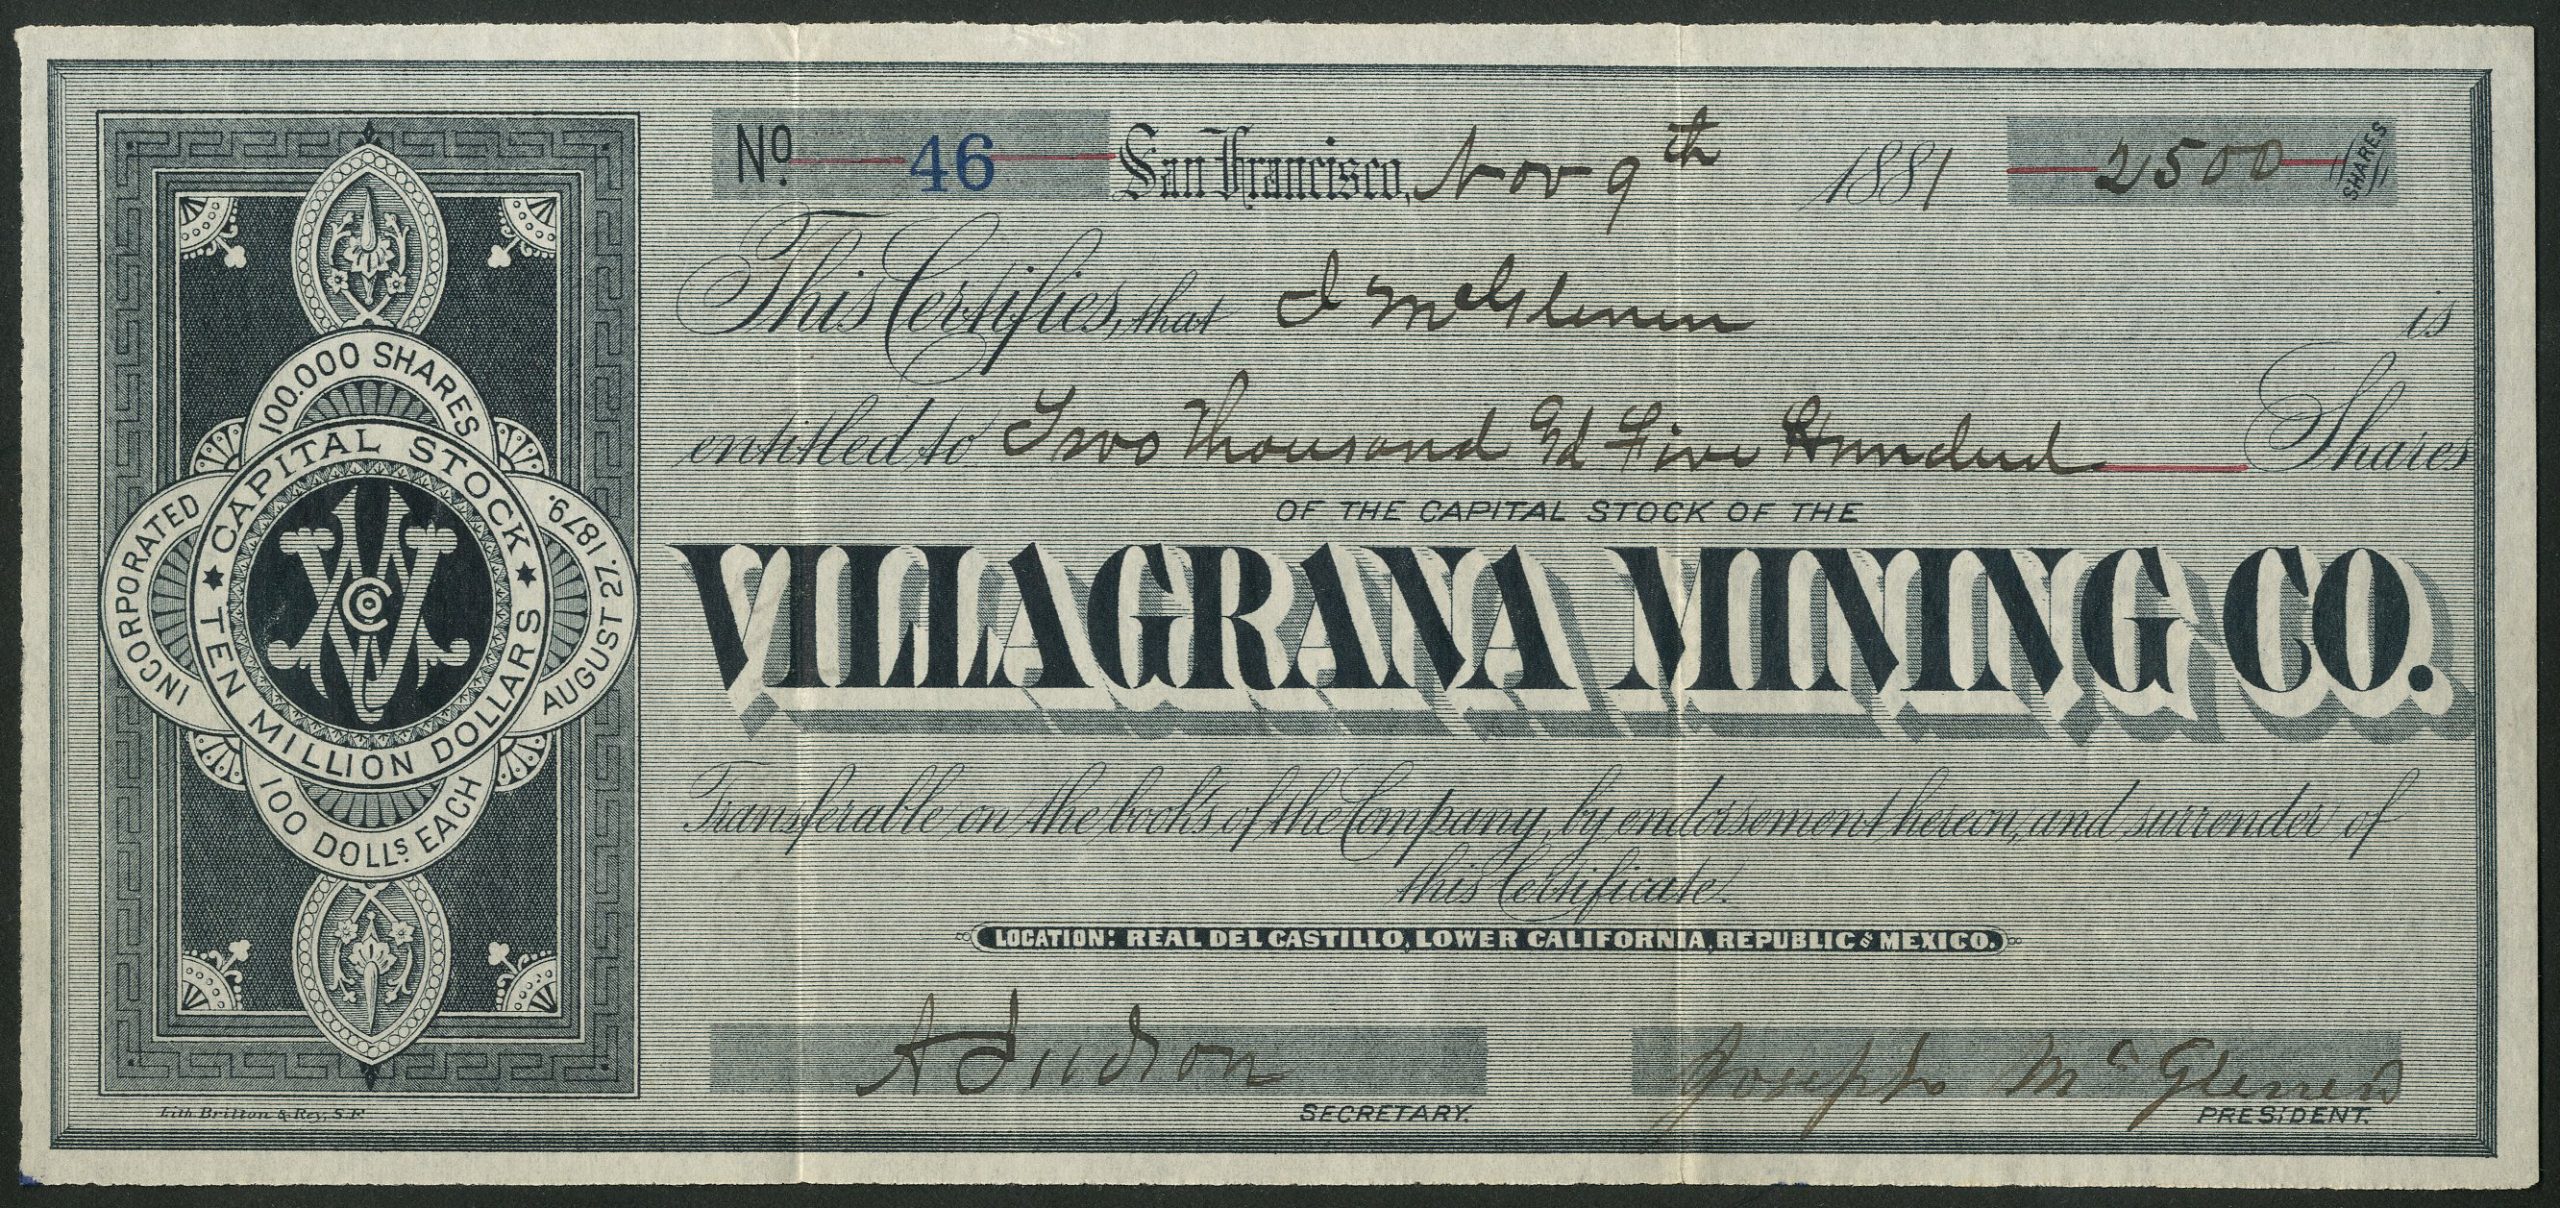 No. 46 San Francisco, Nov 9th 1881 2500 SHARES
This Certifies, that J McGlenen is
entitled to Two Thousand & Five Hundred Shares
OF THE CAPITAL STOCK OF THE
VILLAGRANA MINING CO.
Transferable on the books of the Company, by endorsement hereon, and surrender of
this Certificate.
LOCATION: REAL DEL CASTILLO, LOWER CALIFORNIA, REPUBLIC OF MEXICO.
Joseph McGlenen
SECRETARY. PRESIDENT.
100.000 SHARES
INCORPORATED AUGUST 27. 1879.
CAPITAL STOCK
TEN MILLION DOLLARS
VM CO
100 DOLLS. EACH
Lith Britton & Rey, S.F.